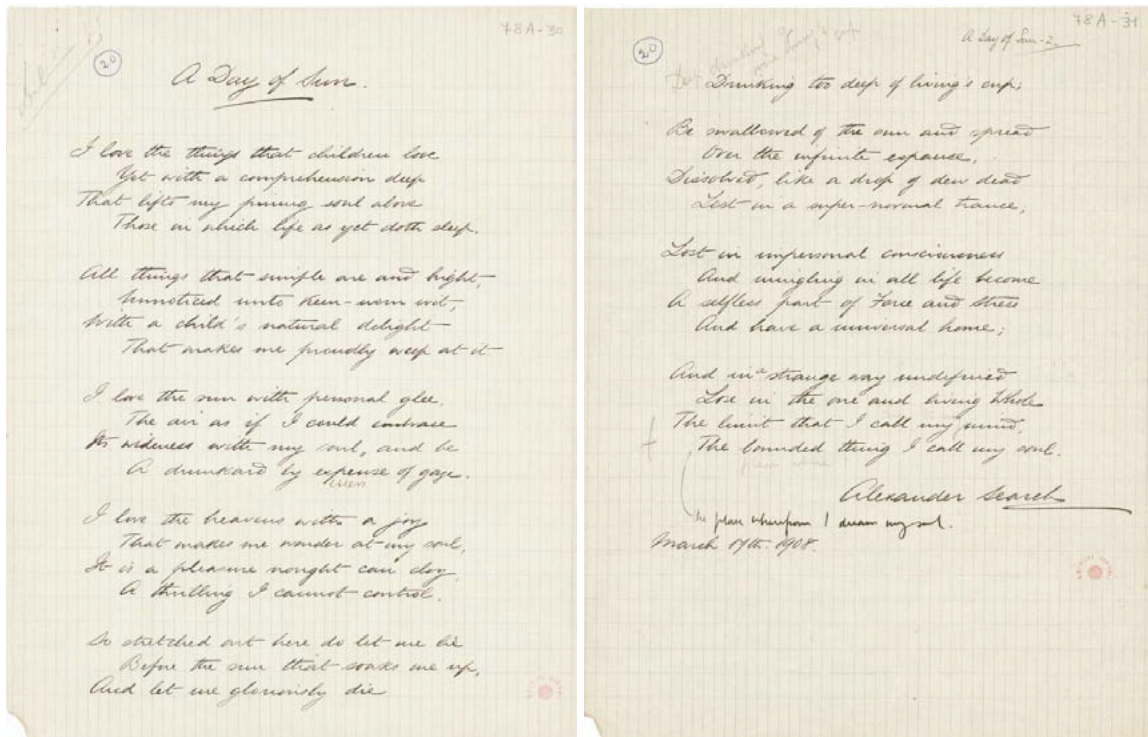 78A-30
20
A Day of Sun.
I love the things that children love
Yet with a comprehension deep
That lifts my pining soul above
Those in which life as yet doth sleep.
All things that simple are and bright,
Unnoticed unto keen-worn wit,
With a child's natural delight
That makes me proudly weep at it.
I love the sun with personal glee,
The air as if I could embrace
Its wideness with my soul, and be
A drunkard by expense of gaze.
excess
I love the heavens with a joy
That makes me wonder at my soul,
It is a pleasure nought can cloy,
A thrilling I cannot control.
So stretched out here do let me lie
Before the sun that soaks me up,
And let me gloriously die
78A-31
20
A Day of Sun - 2.
Drinking too deep of living's cup;
Be swallowed of the sun and spread
Over the infinite expanse,
Dissolved, like a drop of dew dead
Lost in a super-normal trance;
Lost in impersonal consciousness
And mingling in all life become
A selfless part of Force and Stress
And have a universal home;
And in a strange way undefined
Lose in the one and living Whole
The limit that I call my mind,
The bounded thing I call my soul.
Alexander Search
The place wherefrom I dream my soul.
March 17th. 1908.